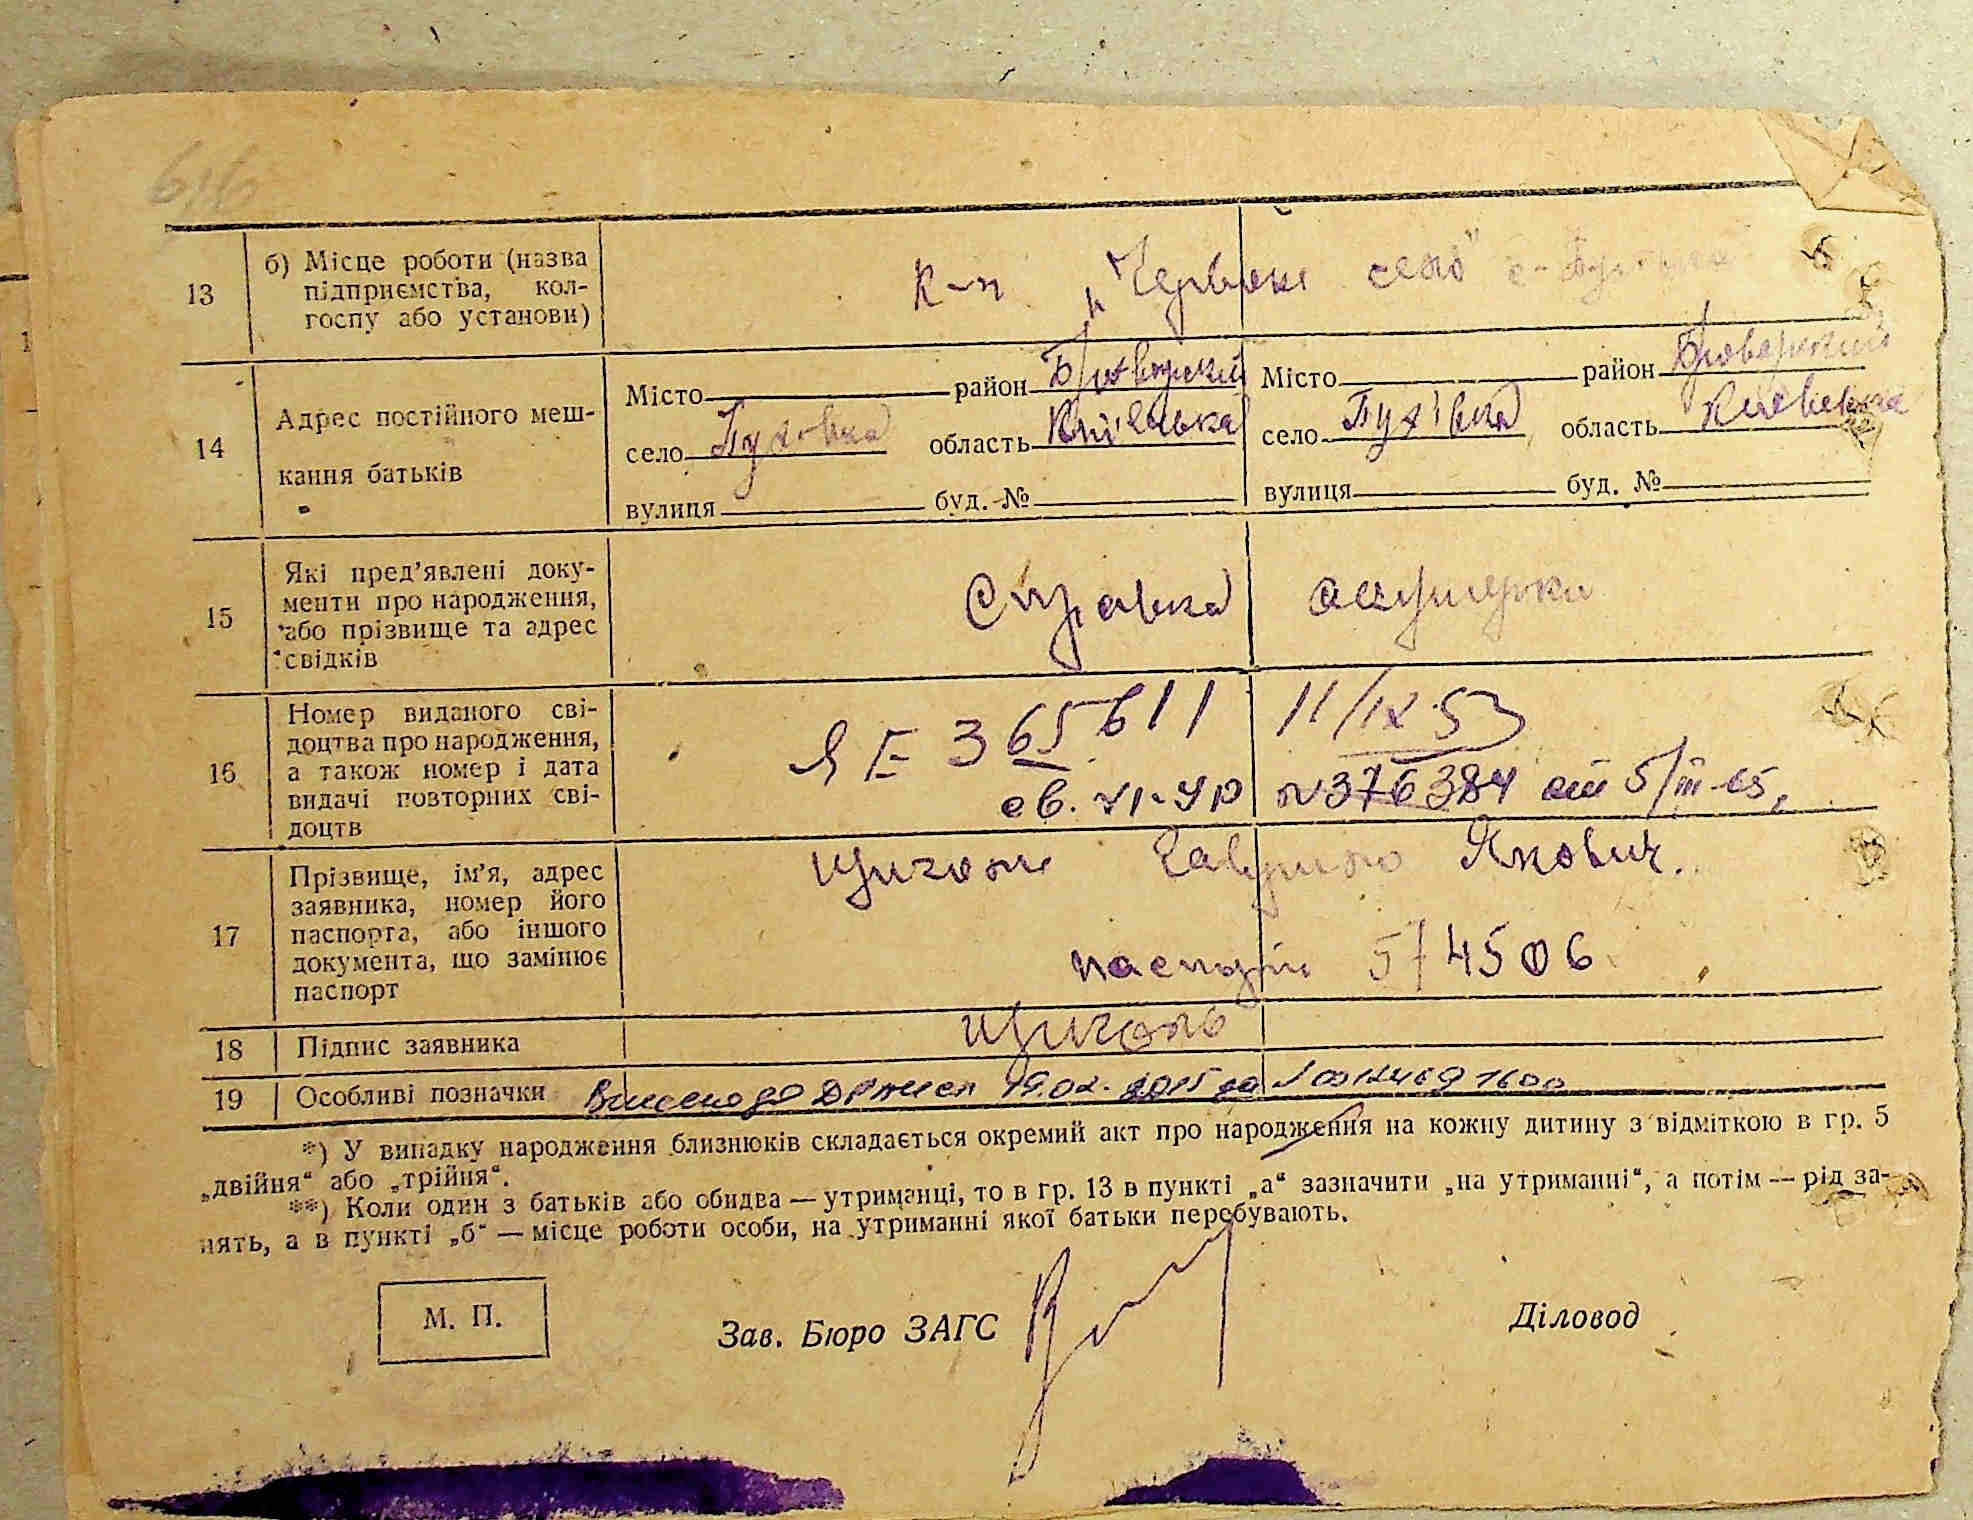 616
13
б) Місце роботи (назва
підприємства, кол-
госпу або установи)
К-п „Червоне село" с-Пухівка
14
Адрес постійного меш-
кання батьків
Місто район Броварский
село Пухівка область Київська
вулиця буд. №
Місто район Броварский
село Пухівка область Киевська
вулиця буд. №
15
Які пред’явлені доку-
менти про народження,
або прізвище та адрес
свідків
Справка акушерки
16
Номер виданого сві-
доцтва про народження,
а також номер і дата
видачі повторних сві-
доцтв
ЯЕ 365611 11/IX 53
св. VI-УР №376384 от 5/III-65,
17
Прізвище, ім’я, адрес
заявника, номер його
паспорта, або іншого
документа, що замінює
паспорт
Цигань Гаврило Якович.
паспорт 574506
18
Підпис заявника
19
Особливі позначки
Внесено до ДРАЦСГ 19.02.2015 за
*) У випадку народження близнюків складається окремий акт про народження на кожну дитину з відміткою в гр. 5
„двійня“ або „трійня“.
**) Коли один з батьків або обидва — утриманці, то в гр. 13 в пункті „а“ зазначити „на утриманні“, а потім — рід за-
нять, а в пункті „б“ — місце роботи особи, на утриманні якої батьки перебувають.
М. П.
Зав. Бюро ЗАГС
Діловод